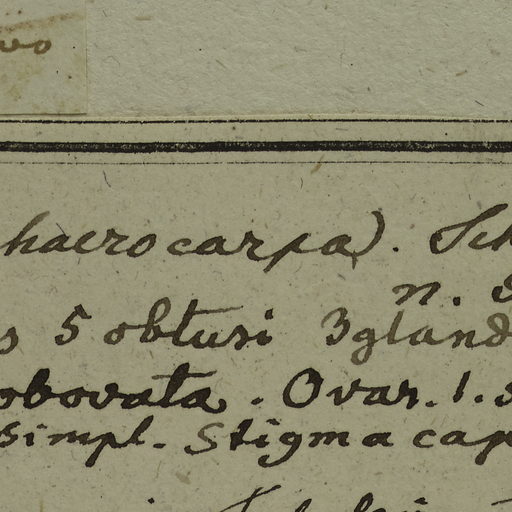 haerocarpa). Sch
n.
s 5 obtusi 3gland
obovata. Ovar. 1. s
simpl. Stigma cap